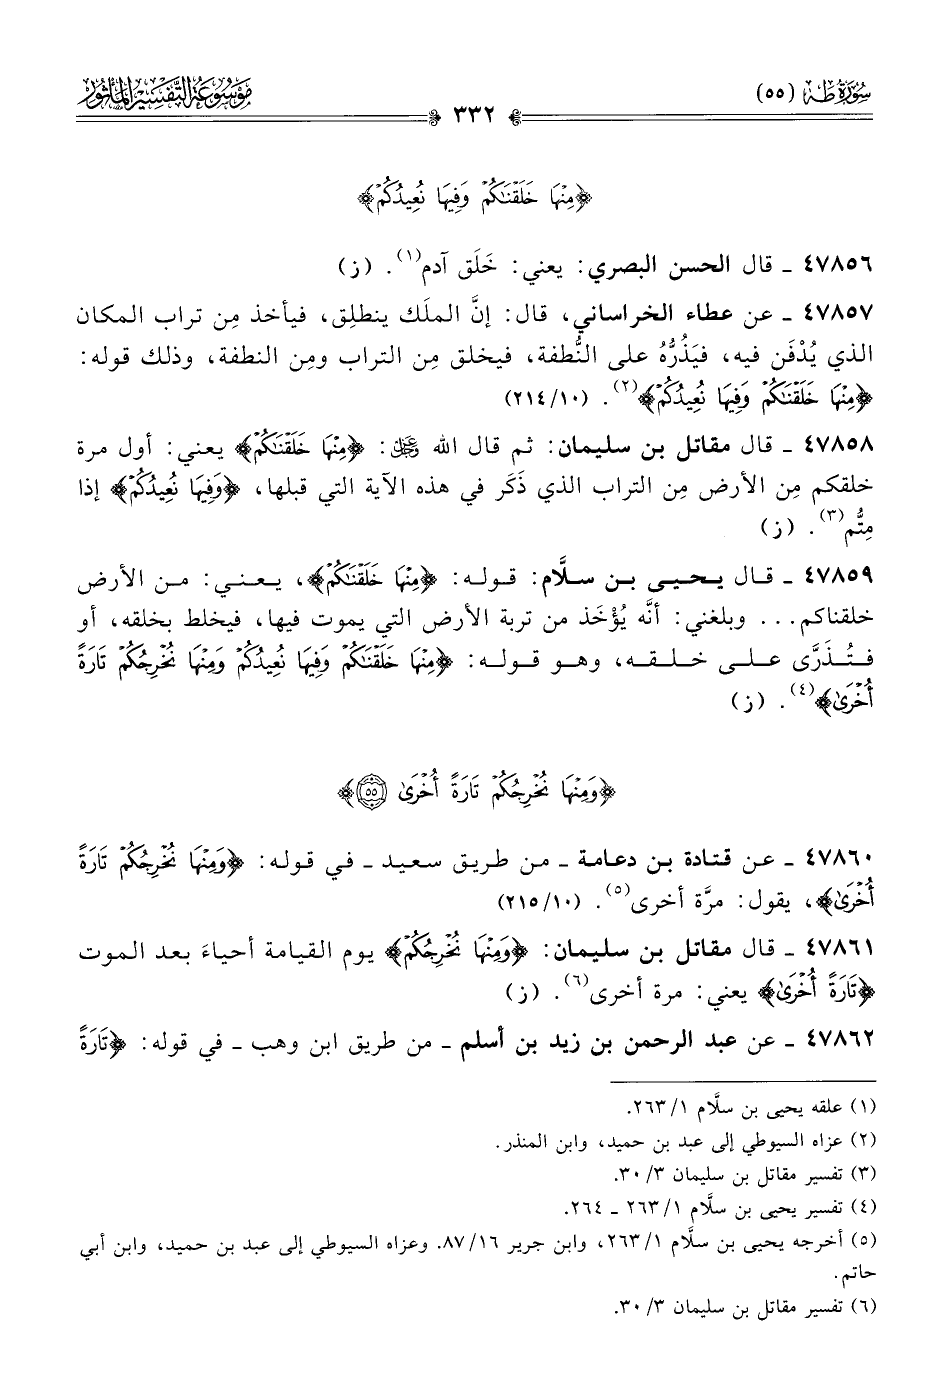 سُورَةُ طه (٥٥)
٣٣٢
مَوْسُوعَةُ التَّفْسِيرِ المَأْثُورِ
﴿مِنْهَا خَلَقْنَٰكُمْ وَفِيهَا نُعِيدُكُمْ﴾
٤٧٨٥٦ ـ قال الحسن البصري: يعني: خَلَق آدم(١). (ز)
٤٧٨٥٧ ـ عن عطاء الخراساني، قال: إنَّ الملَك ينطلِق، فيأخذ مِن تراب المكان
الذي يُدْفَن فيه، فيَذُرُّه على النُّطفة، فيخلق مِن التراب ومِن النطفة، وذلك قوله:
﴿مِنْهَا خَلَقْنَٰكُمْ وَفِيهَا نُعِيدُكُمْ﴾(٢). (٢١٤/١٠)
٤٧٨٥٨ ـ قال مقاتل بن سليمان: ثم قال الله ﷿: ﴿مِنْهَا خَلَقْنَٰكُمْ﴾ يعني: أول مرة
خلقكم مِن الأرض مِن التراب الذي ذَكَر في هذه الآية التي قبلها، ﴿وَفِيهَا نُعِيدُكُمْ﴾ إذا
مِتُّم(٣). (ز)
٤٧٨٥٩ ـ قال يحيى بن سلَّام: قوله: ﴿مِنْهَا خَلَقْنَٰكُمْ﴾، يعني: من الأرض
خلقناكم... وبلغني: أنَّه يُؤْخَذ من تربة الأرض التي يموت فيها، فيخلط بخلقه، أو
فتُذَرَّى على خلقه، وهو قوله: ﴿مِنْهَا خَلَقْنَٰكُمْ وَفِيهَا نُعِيدُكُمْ وَمِنْهَا نُخْرِجُكُمْ تَارَةً
أُخْرَىٰ﴾(٤). (ز)
﴿وَمِنْهَا نُخْرِجُكُمْ تَارَةً أُخْرَىٰ ٥٥﴾
٤٧٨٦٠ ـ عن قتادة بن دعامة ـ من طريق سعيد ـ في قوله: ﴿وَمِنْهَا نُخْرِجُكُمْ تَارَةً
أُخْرَىٰ﴾، يقول: مرَّة أخرى(٥). (٢١٥/١٠)
٤٧٨٦١ ـ قال مقاتل بن سليمان: ﴿وَمِنْهَا نُخْرِجُكُمْ﴾ يوم القيامة أحياءَ بعد الموت
﴿تَارَةً أُخْرَىٰ﴾ يعني: مرة أخرى(٦). (ز)
٤٧٨٦٢ ـ عن عبد الرحمن بن زيد بن أسلم ـ من طريق ابن وهب ـ في قوله: ﴿تَارَةً
(١) علقه يحيى بن سلَّام ٢٦٣/١.
(٢) عزاه السيوطي إلى عبد بن حميد، وابن المنذر.
(٣) تفسير مقاتل بن سليمان ٣٠/٣.
(٤) تفسير يحيى بن سلَّام ٢٦٣/١ ـ ٢٦٤.
(٥) أخرجه يحيى بن سلَّام ٢٦٣/١، وابن جرير ٨٧/١٦. وعزاه السيوطي إلى عبد بن حميد، وابن أبي
حاتم.
(٦) تفسير مقاتل بن سليمان ٣٠/٣.